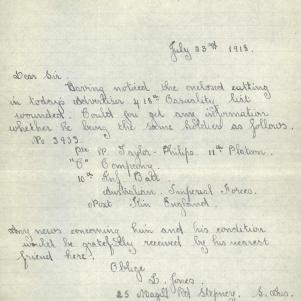 July 23rd 1918.
Dear Sir.
Having noticed the enclosed cutting
in todays Advertiser of 18th Casuality list
wounded. Could you get any information
whether he being the same soldier as follows.
No 3933
Pte PP. Taylor-Philips. 11th Platoon.
"C" Company
10th Inf Batt
Australian Imperial Forces.
England.
Any news concerning him and his condition
would be gratefully received by his nearest
friend here.
Oblige
L. Jones.
25 Magill Rd Stepney. S. Aus.